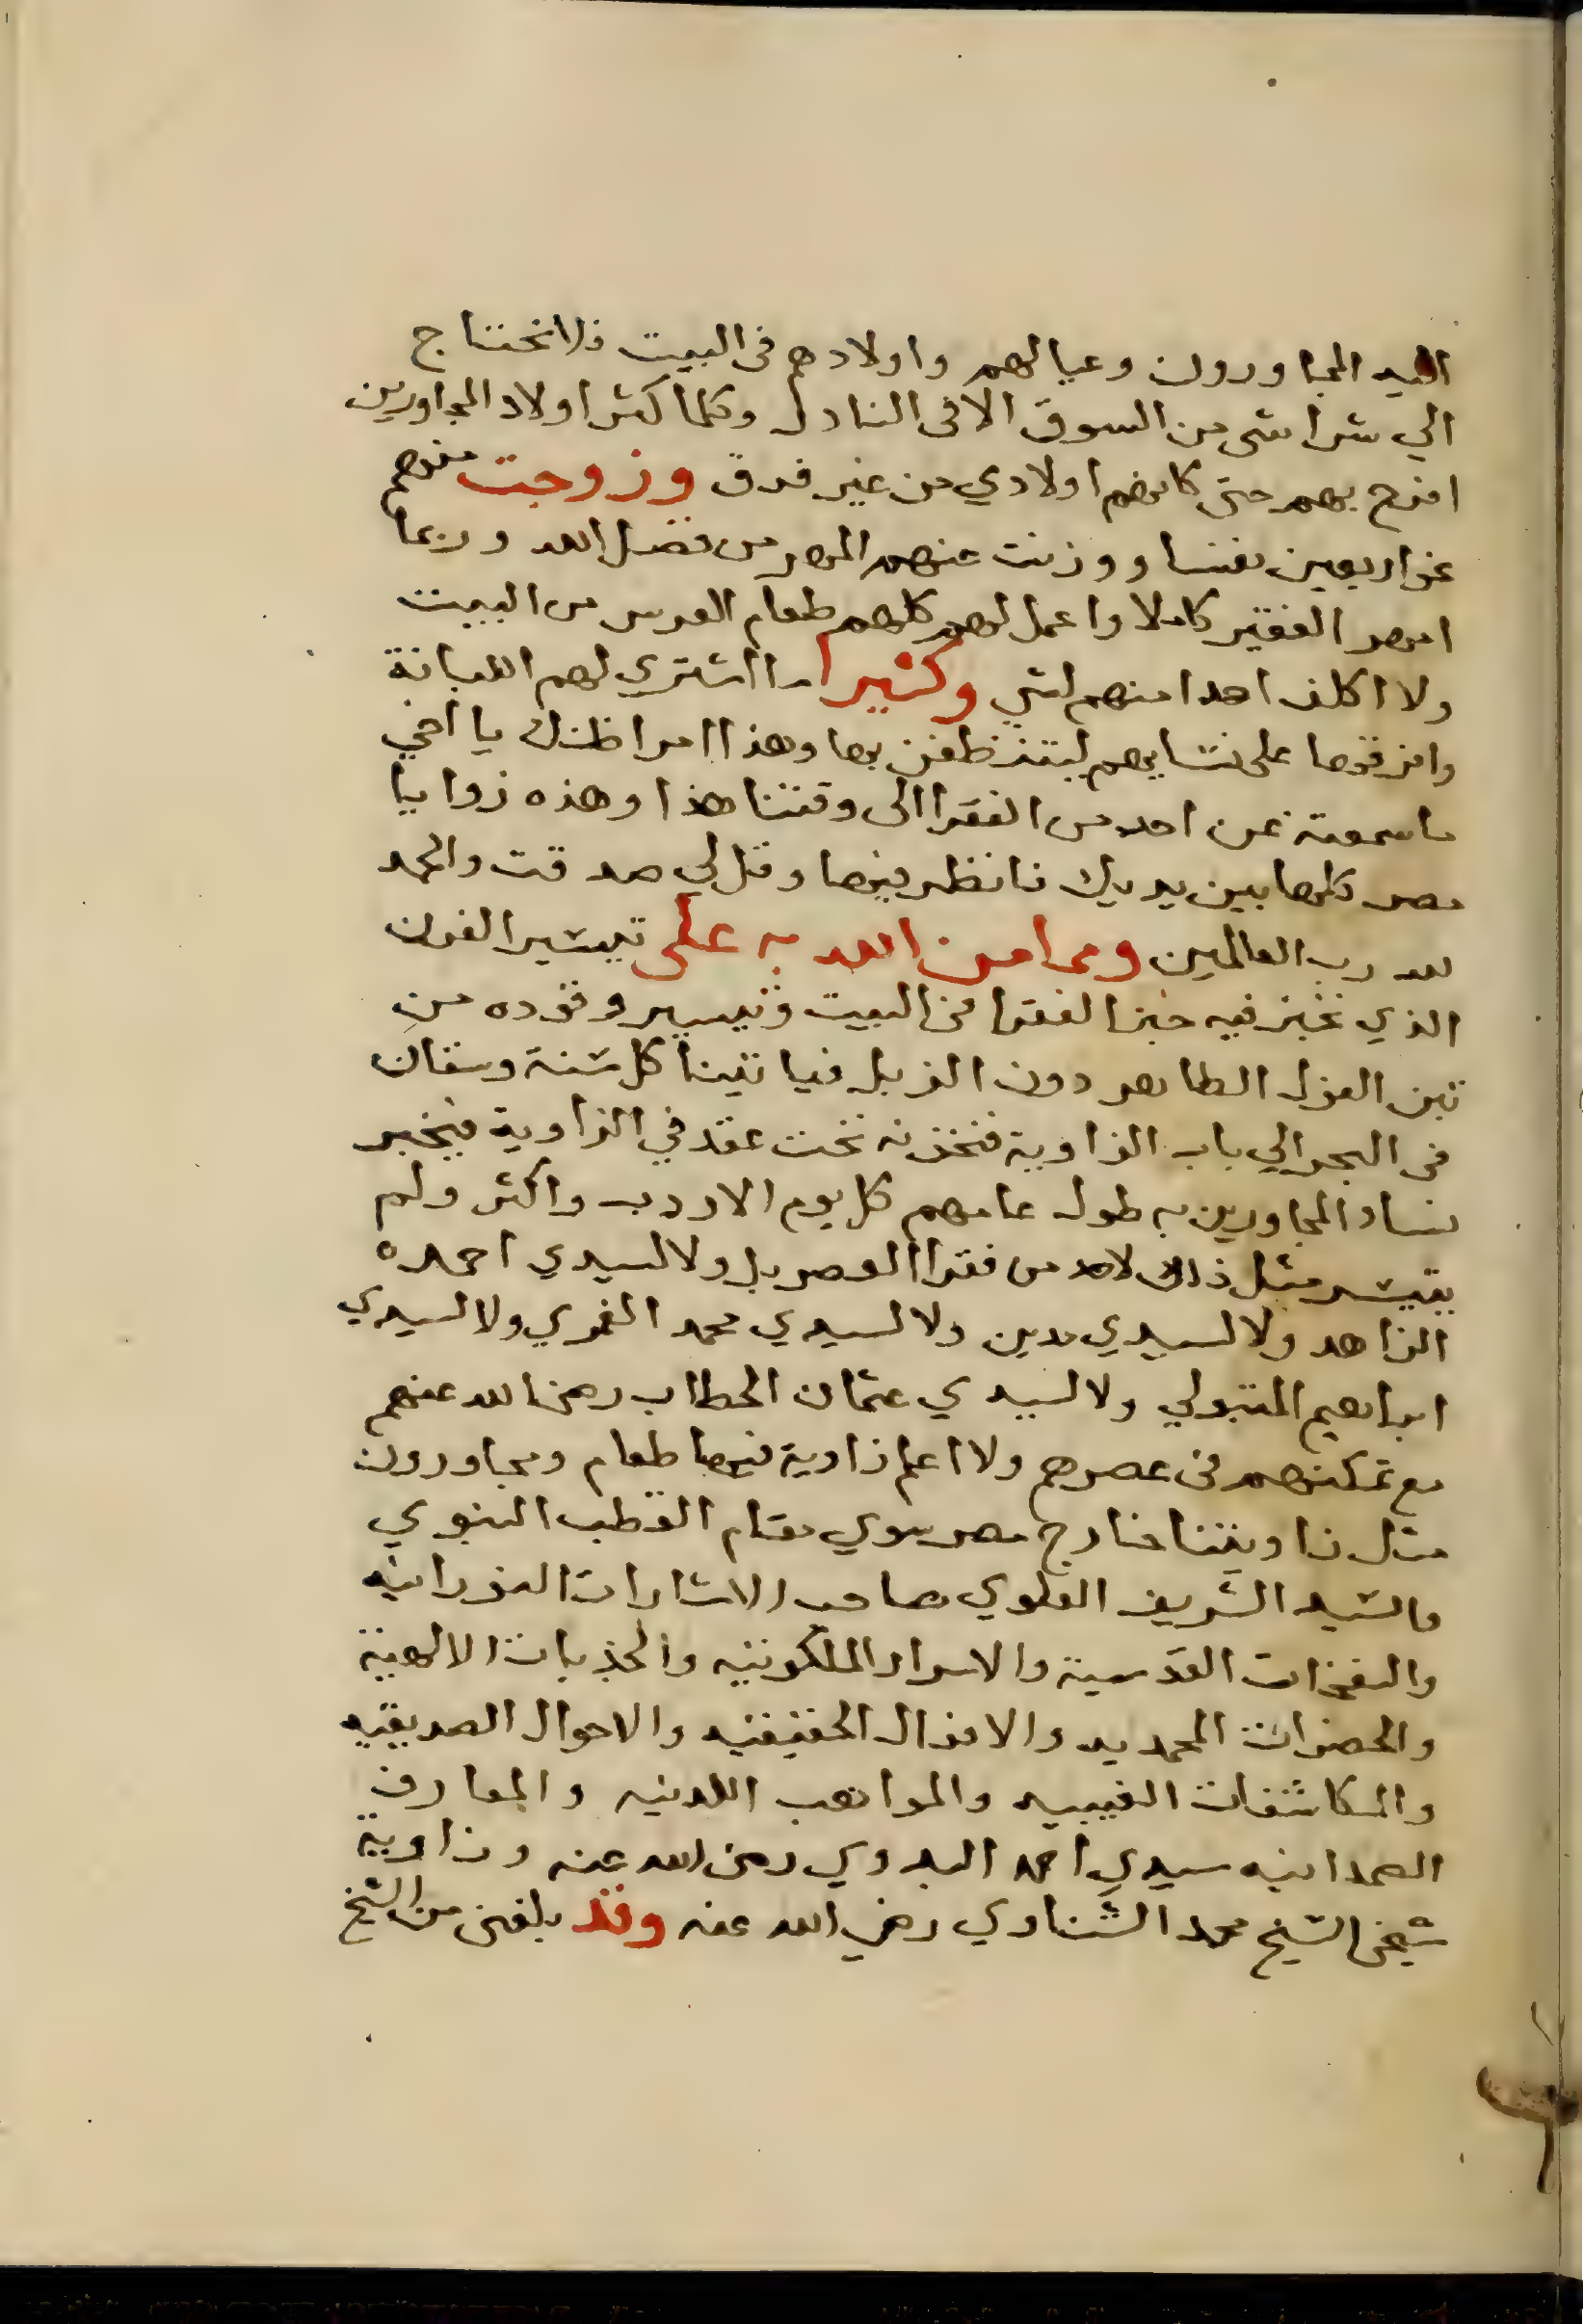 اليه المجاورون وعيالهم واولادهم فى البيت فلا نحتاج
الي شرا شى من السوق الا فى النادر وكلما كثر اولاد المجاورين
افرح بهم حتى كانهم اولادي من غير فرق وزوجت منهم
نحو اربعين نفسا ووزنت عنهم المهر من فضل الله وربما
امهر الفقير كاملا واعمل لهم كلهم طعام العرس من البيت
ولا اكلف احدا منهم لشي وكثيرا ما اشتري لهم اللبانة
وافرقها على نسايهم ليتنظفن بها وهذا امر اظنك يا اخي
ما سمعته عن احد من الفقرا الى وقتنا هذا وهذه زوايا
مصر كلها بين يديك فانظر فيها وقل لي صدقت والحمد
لله رب العالمين ومما من الله به على تيسير الفرن
الذي نخبز فيه خبز الفقرا فى البيت وتيسير وقوده من
تبن الفول الطاهر دون الزبل فياتينا كل سنة وسقان
فى البحر الي باب الزاوية فنخزنه تحت عقد في الزاوية فيخبز
نساء المجاورين به طول عامهم كل يوم الاردب واكثر ولم
يتيسر مثل ذلك لاحد من فقرا العصر بل ولا لسيدي احمد ه
الزاهد ولا لسيدي مدين ولا لسيدي محمد الغمري ولا لسيدي
ابراهيم المتبولي ولا لسيدي عثمان الحطاب رضى الله عنهم
مع تمكنهم فى عصرهم ولا اعلم زاوية فيها طعام ومجاورون
مثل زاويتنا خارج مصر سوي مقام القطب النبوي
والسيد الشريف العلوي صاحب الاشارات النورانيه
والنفحات القدسية والاسرار الملكوتيه والجذبات الالهية
والحضرات المحمديه والاقوال الحقيقيه والاحوال الصديقيه
والمكاشفات الغيبيه والمواهب اللدنيه والمعارف
الصمدانيه سيدي احمد البدوي رضى الله عنه وزاوية
شيخى الشيخ محمد الشناوي رضي الله عنه وقد بلغنى من الشيخ